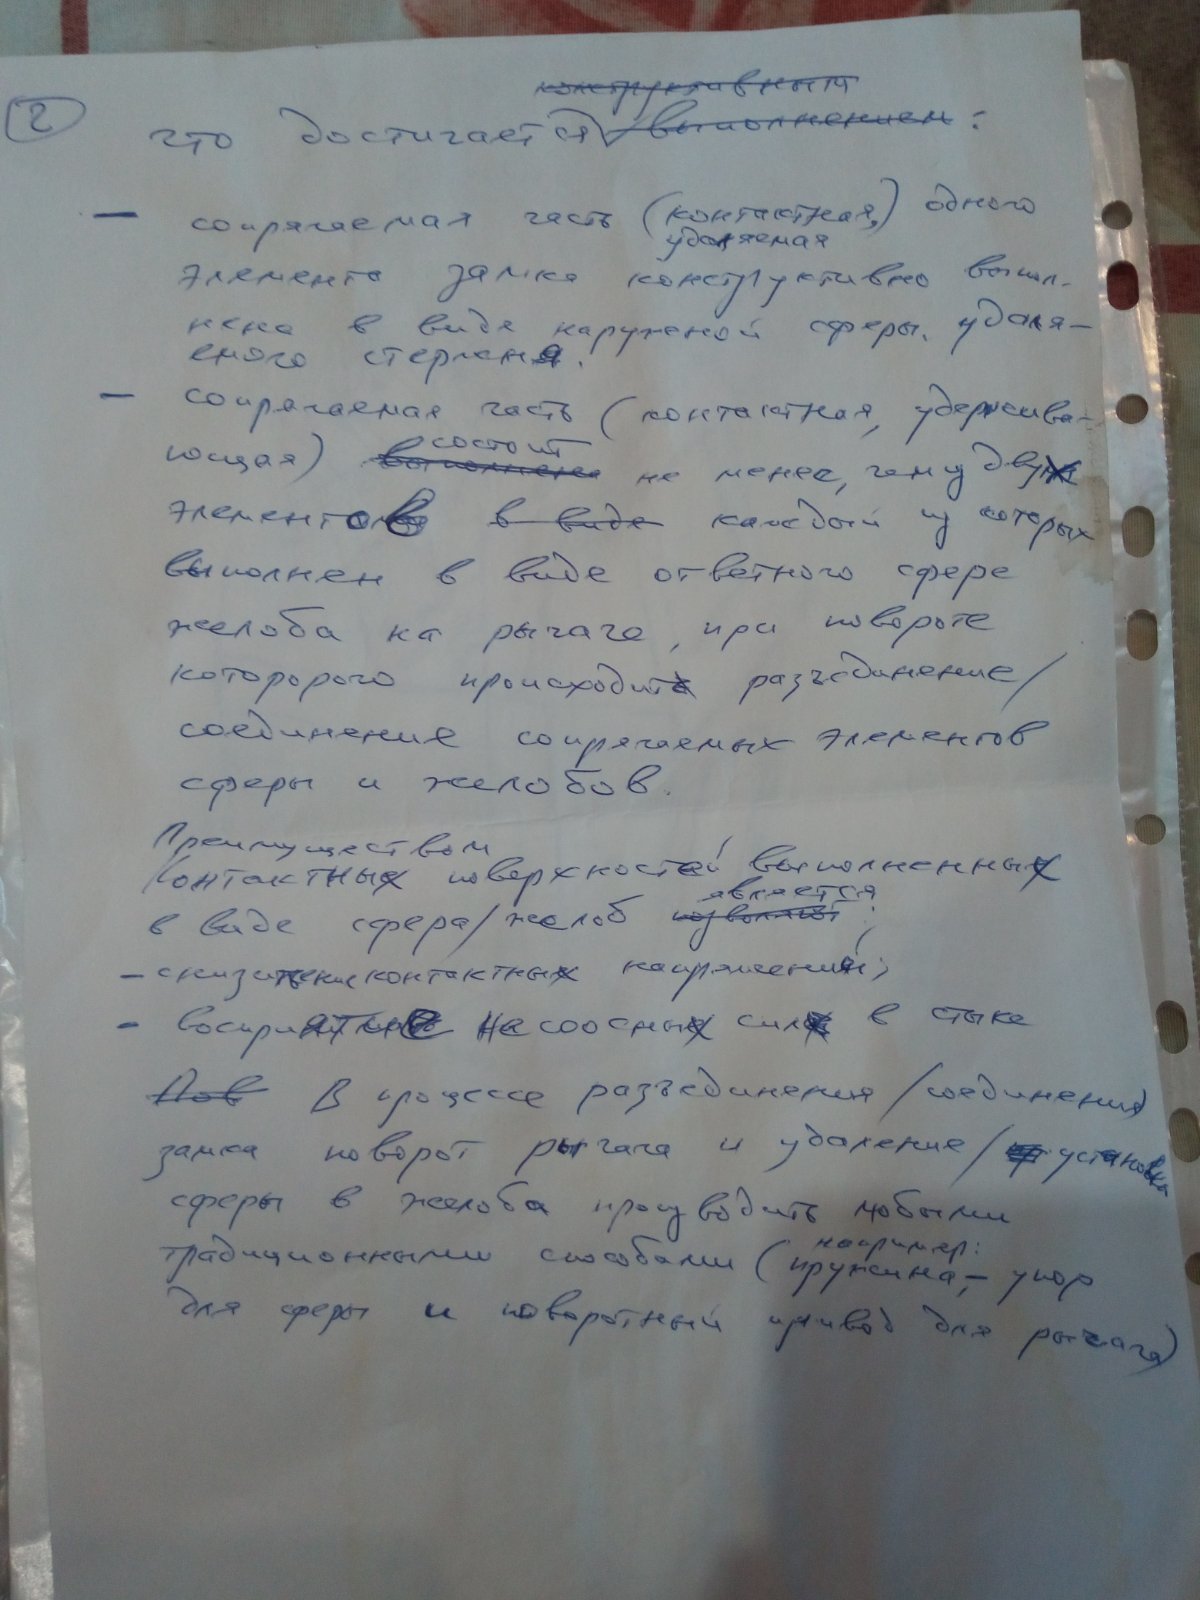 2
конструктивным
что достигается выполнением:
- сопрягаемая часть (контактная,) одного
удаляемая
элемента замка конструктивно выпол-
нена в виде наружной сферы. удаля-
емого стержня.
- сопрягаемая часть (контактная, удержива-
ющая) выполнена состоит не менее, чем из двух
элементов в виде каждый из которых
выполнен в виде ответного сфере
желоба на рычаге, при повороте
которорого происходит разъединение/
соединение сопрягаемых элементов
сферы и желобов.
Преимуществом
контактных поверхностей выполненных
в виде сфера/желоб позволяют является:
- снижение контактных напряжений;
- восприятие несоосных сил в стыке
Пов В процессе разъединения/соединения
замка поворот рычага и удаление/установка
сферы в желоба производить любыми
традиционными способами (например:
пружина, - упор
для сферы и поворотный привод для рычага)